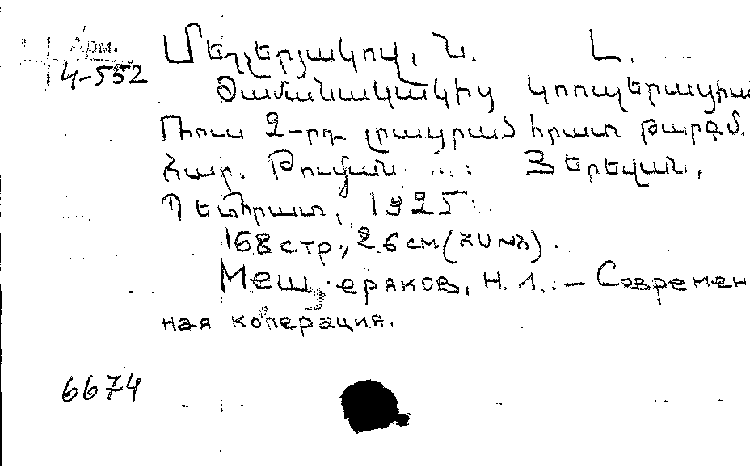 Арм.
4-552
Մեշչերյակով, Ն. Լ.
Ժամանակակից կոոպերացիա
Ռուս 2-րդ լրացրած հրատ թարգմ.
Հար. Թումյան ...: Յերեվան,
Պետհրատ, 1925.
168 стр., 26 см (ХՍՄԽ).
Мещеряков, Н. Л. — Современ
ная коперация.
6674